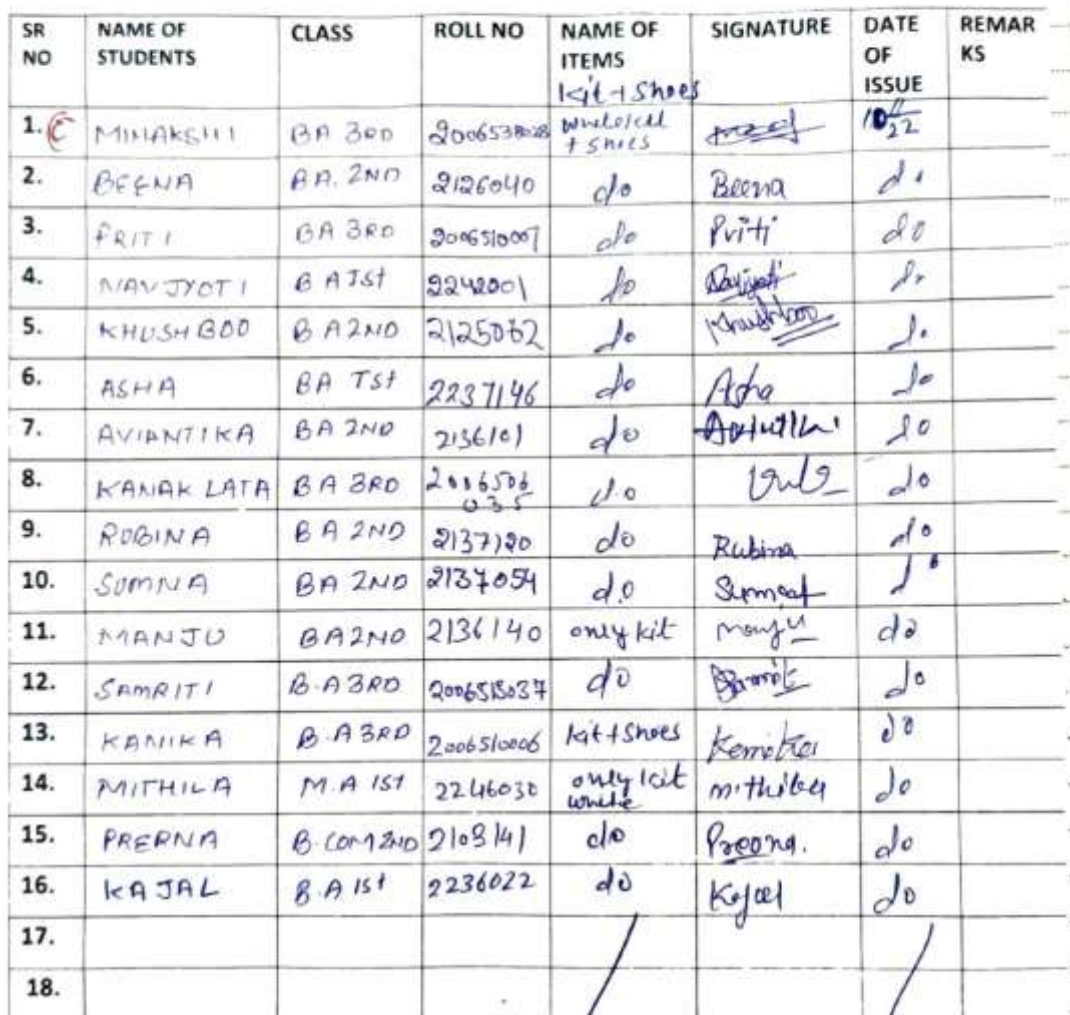 SR NO NAME OF STUDENTS CLASS ROLL NO NAME OF ITEMS SIGNATURE DATE OF ISSUE REMARKS
kit + Shoes
1. C MINAKSHI BA 3RD + Shoes
2. BEENA BA. 2ND 2126040 do Beena do
3. PRITI BA 3RD 2006510007 do Priti do
4. NAVJYOTI BA Ist 2242001 do Navjyoti do
5. KHUSHBOO BA 2ND 2125062 do Khushboo do
6. ASHA BA Ist 2237146 do Asha do
7. AVIANTIKA BA 2ND 2136101 do do
8. KANAK LATA BA 3RD 2006506035 do do
9. RUBINA BA 2ND 2137120 do Rubina do
10. SUMNA BA 2ND 2137054 do do
11. MANJU BA 2ND 2136140 only kit Manju do
12. SAMRITI B.A 3RD 2006515037 do do
13. KANIKA B.A 3RD 2006510006 kit + Shoes Kanika do
14. MITHILA M.A 1st 2246030 only kit white mithila do
15. PRERNA B.COM 2ND 2103141 do Prerna. do
16. KAJAL B.A 1st 2236022 do Kajal do
17.
18.